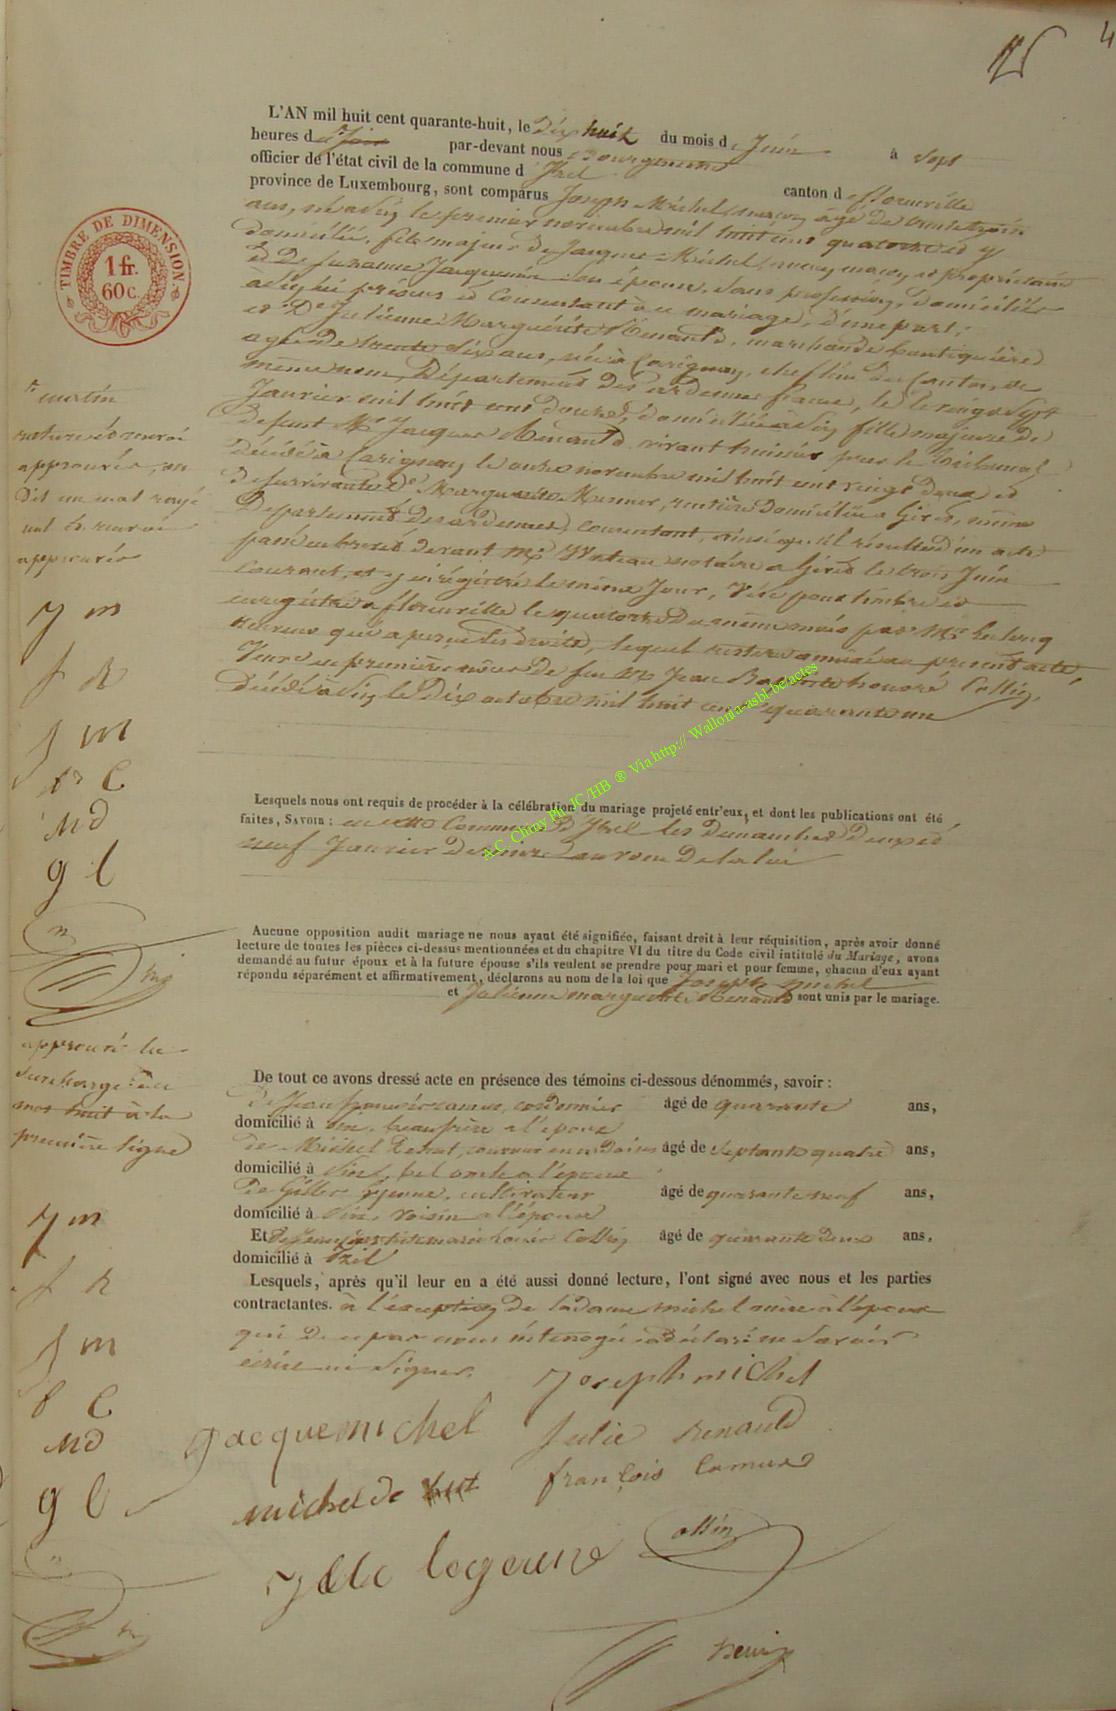 L'AN mil huit cent quarante-huit, le dix huit du mois de Juin à sept
heures du Soir par-devant nous Bourgmestre
officier de l'état civil de la commune d'Izel canton de florenville
province de Luxembourg, sont comparus Joseph Michel, âgé de trente trois
ans, né à le premier novembre mil huit cent quatorze et y
domicilié, fils majeur de Jacques Michel, et propriétaire
et De Suzanne Jacquemin son épouse, sans profession, domiciliés
à présens et Consentant à ce mariage, d'une part;
et De Julienne Marguérite Renauld, marchande boutiquière
agée de trente six ans, née à Carignan, chef lieu du Canton de
même nom, Département des ardennes france, le vingt sept
Janvier mil huit cent douze, domiciliée à fille majeure de
defunt Mr Jacques Renauld vivant huissier près le Tribunal
Décédé à Carignan le onze novembre mil huit cent vingt deux et
De survivante De Marguerite rentière domiciliée a même
Département des ardennes, consentant, ainsi qu'il résulte d'un acte
passé en brevet devant Me notaire a le trois Juin
courant, et y enrégistré le même Jour, Visé pour timbre et
enregistré a florenville le quatorze Du même mois par Mr Leclercq
Receveur qui a perçu les droits, lequel restera annexé au present acte,
Veuve en premières nôces De feu Mr Jean Baptiste honoré Collin,
Décédé à le Dix octobre mil huit cent quarante un
Lesquels nous ont requis de procéder à la célébration du mariage projeté entr'eux, et dont les publications ont été
faites, SAVOIR : en cette Commune D'Izel les Dimanches Deux et
neuf Janvier Dernier au nom De la loi
Aucune opposition audit mariage ne nous ayant été signifiée, faisant droit à leur réquisition, après avoir donné
lecture de toutes les pièces ci-dessus mentionnées et du chapitre VI du titre du Code civil intitulé du Mariage, avons
demandé au futur époux et à la future épouse s'ils veulent se prendre pour mari et pour femme, chacun d'eux ayant
répondu séparément et affirmativement, déclarons au nom de la loi que Joseph Michel
et Julienne marguerite Renauld sont unis par le mariage.
De tout ce avons dressé acte en présence des témoins ci-dessous dénommés, savoir :
De françois camus, cordonnier âgé de quarante ans,
domicilié à beaufrère a l'époux
de Michel âgé de septante quatre ans,
domicilié à bel oncle a l'épouse
De Gilles cultivateur âgé de quarante neuf ans,
domicilié à voisin a l'épouse
Et De marie Collin âgé de quarante deux ans.
domicilié à Izel
Lesquels, après qu'il leur en a été aussi donné lecture, l'ont signé avec nous et les parties
contractantes. à l'exception de la dame michel mère à l'époux
qui De ce par nous interrogée a déclaré ne Savoir
écrire ni Signer.
Joseph michel
Jacque michel
Julie Renauld
michel de
françois Camus
legerme
ollin
henry
TIMBRE DE DIMENSION.
1 fr.
60 c.
matin
rature et renvoi
approuvés, on
Dit un mot rayé
nul et renvoi
approuvés
J m
f R
J m
C
MD
g l
approuvé la
surcharge
mot huit à la
première ligne
J m
f R
J m
C
MD
g l
A.C. Chiny Ph JC /HB ® Via http:// Wallonia-asbl-be/actes